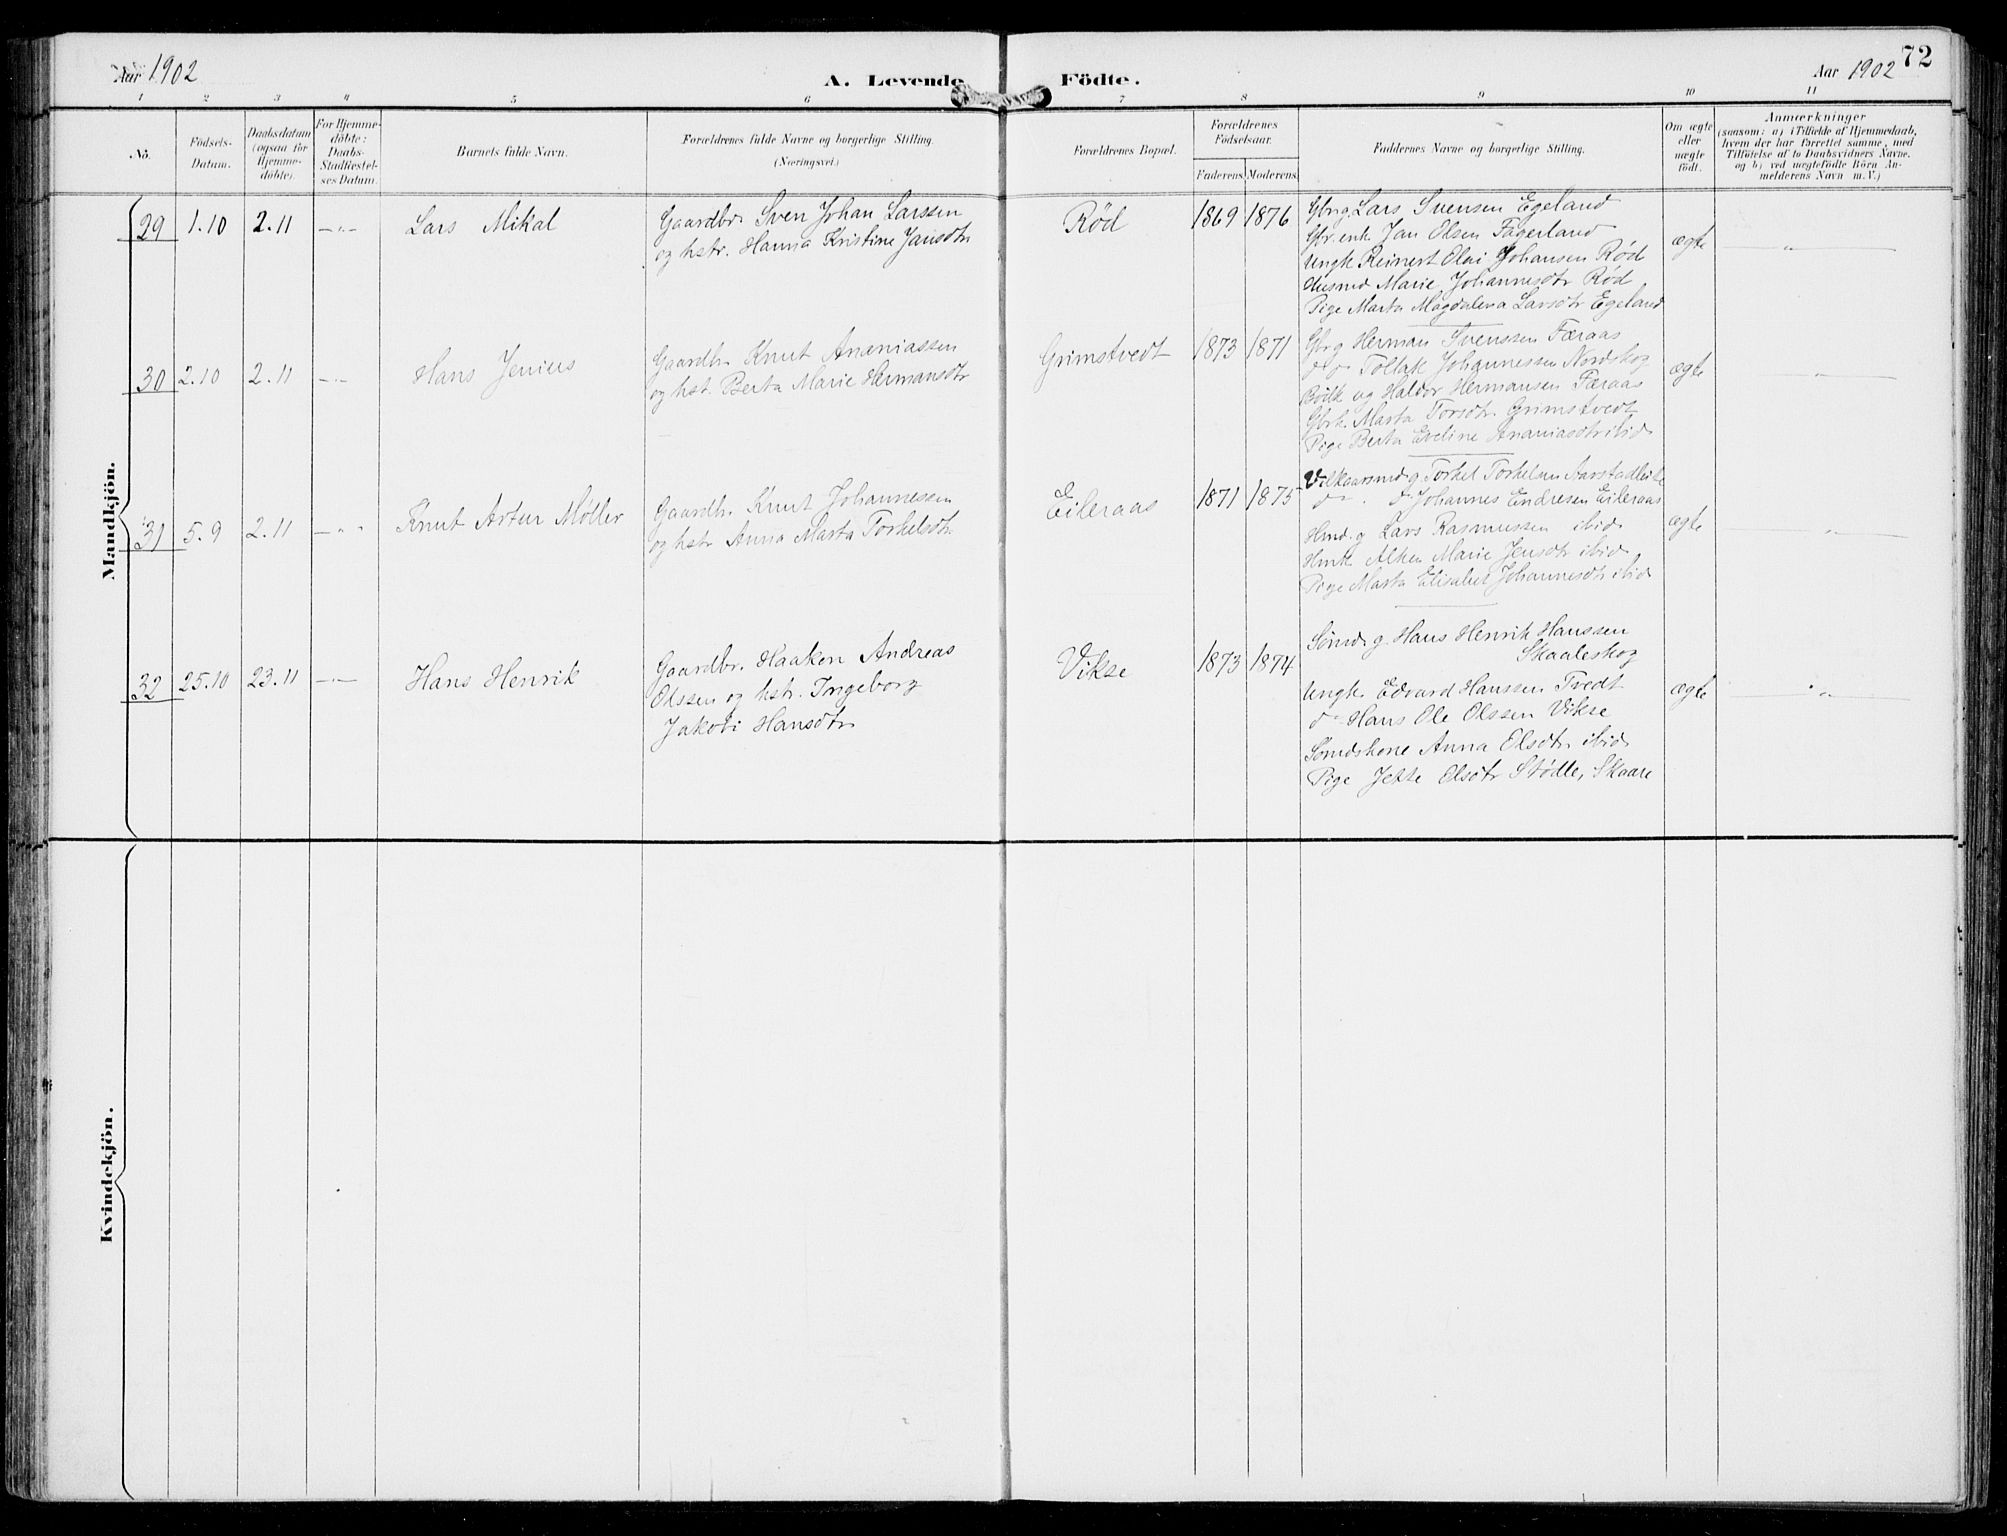 Aar 1902
A. Levende Födte.
Aar 1902
72
1 2 3 4 5 6 7 8 9 10 11
No.
Födsels-
Datum.
Daabsdatum
(ogsaa for
Hjemme-
döbte).
For Hjemme-
döbte:
Daabs-
Stadfæstel-
ses Datum.
Barnets fulde Navn.
Forældrenes fulde Navne og borgerlige Stilling
(Næringsvei.)
Forældrenes Bopæl.
Forældrenes
Födselsaar.
Faderens. Moderens.
Faddernes Navne og borgerlige Stilling.
Om ægte
eller
uægte
födt.
Anmærkninger
(saasom: a) i Tilfælde af Hjemmedaab,
hvem der har forrettet samme, med
Tilföielse af to Daabsvidners Navne.
og b) ved uægtefödte Börn An-
melderens Navn m. V.)
Mandkjön.
29 1.10 2.11 —"— Lars Mikal
Gaardbr. Sven Johan Larssen
og hstr. Hanna Kristine Jansdtr
Rød 1869 1876
Gbr.g. Lars Svensen Egeland
Gbr. enk. Jan Olsen Fagerland
Ungk Reinert Olai Johansen Rød
Husmd Marie Johannesdtr Rød
Pige Marta Magdalena Larsdtr Egeland
ægte —"—
30 2.10 2.11 —"— Hans Jenius
Gaardbr. Knut Ananiassen
og hst. Berta Marie Hermansdtr
Grimstvedt 1873 1871
Gbr g Herman Svenssen Færaas
do do Tollak Johannessen Nordskog
og Haldor Hermansen Færaas
Gbrk. Marta Torsdtr. Grimstvedt
Pige Berta Eveline Ananiasdtr ibid
ægte —"—
31 5.9 2.11 —"— Knut Artur Møller
Gaardbr. Knut Johannessen
og hstr Anna Marta Torkelsdtr.
Eileraas 1871 1875
Vilkaarsmd g. Torkel Torkelsen
do do Johannes Endresen Eileraas
Hmd. g Lars Rasmussen ibid
Hmk Alken Marie Jensdtr ibid
Pige Marta Elisabet Johannesdtr ibid
ægte —"—
32 25.10 23.11 —"— Hans Henrik
Gaardbr. Haaken Andreas
Olssen og hstr. Ingeborg
Jakobi Hansdtr
Vikse 1873 1874
Sømd g. Hans Henrik Hanssen
Skaaleskog
Ungk Edvard Hanssen Tvedt
do Hans Ole Olssen Vikse
Sømdskone Anna Olsdtr ibid
Pige Jette Olsdtr Stødle, Skaare
ægte —"—
Kvindekjön.